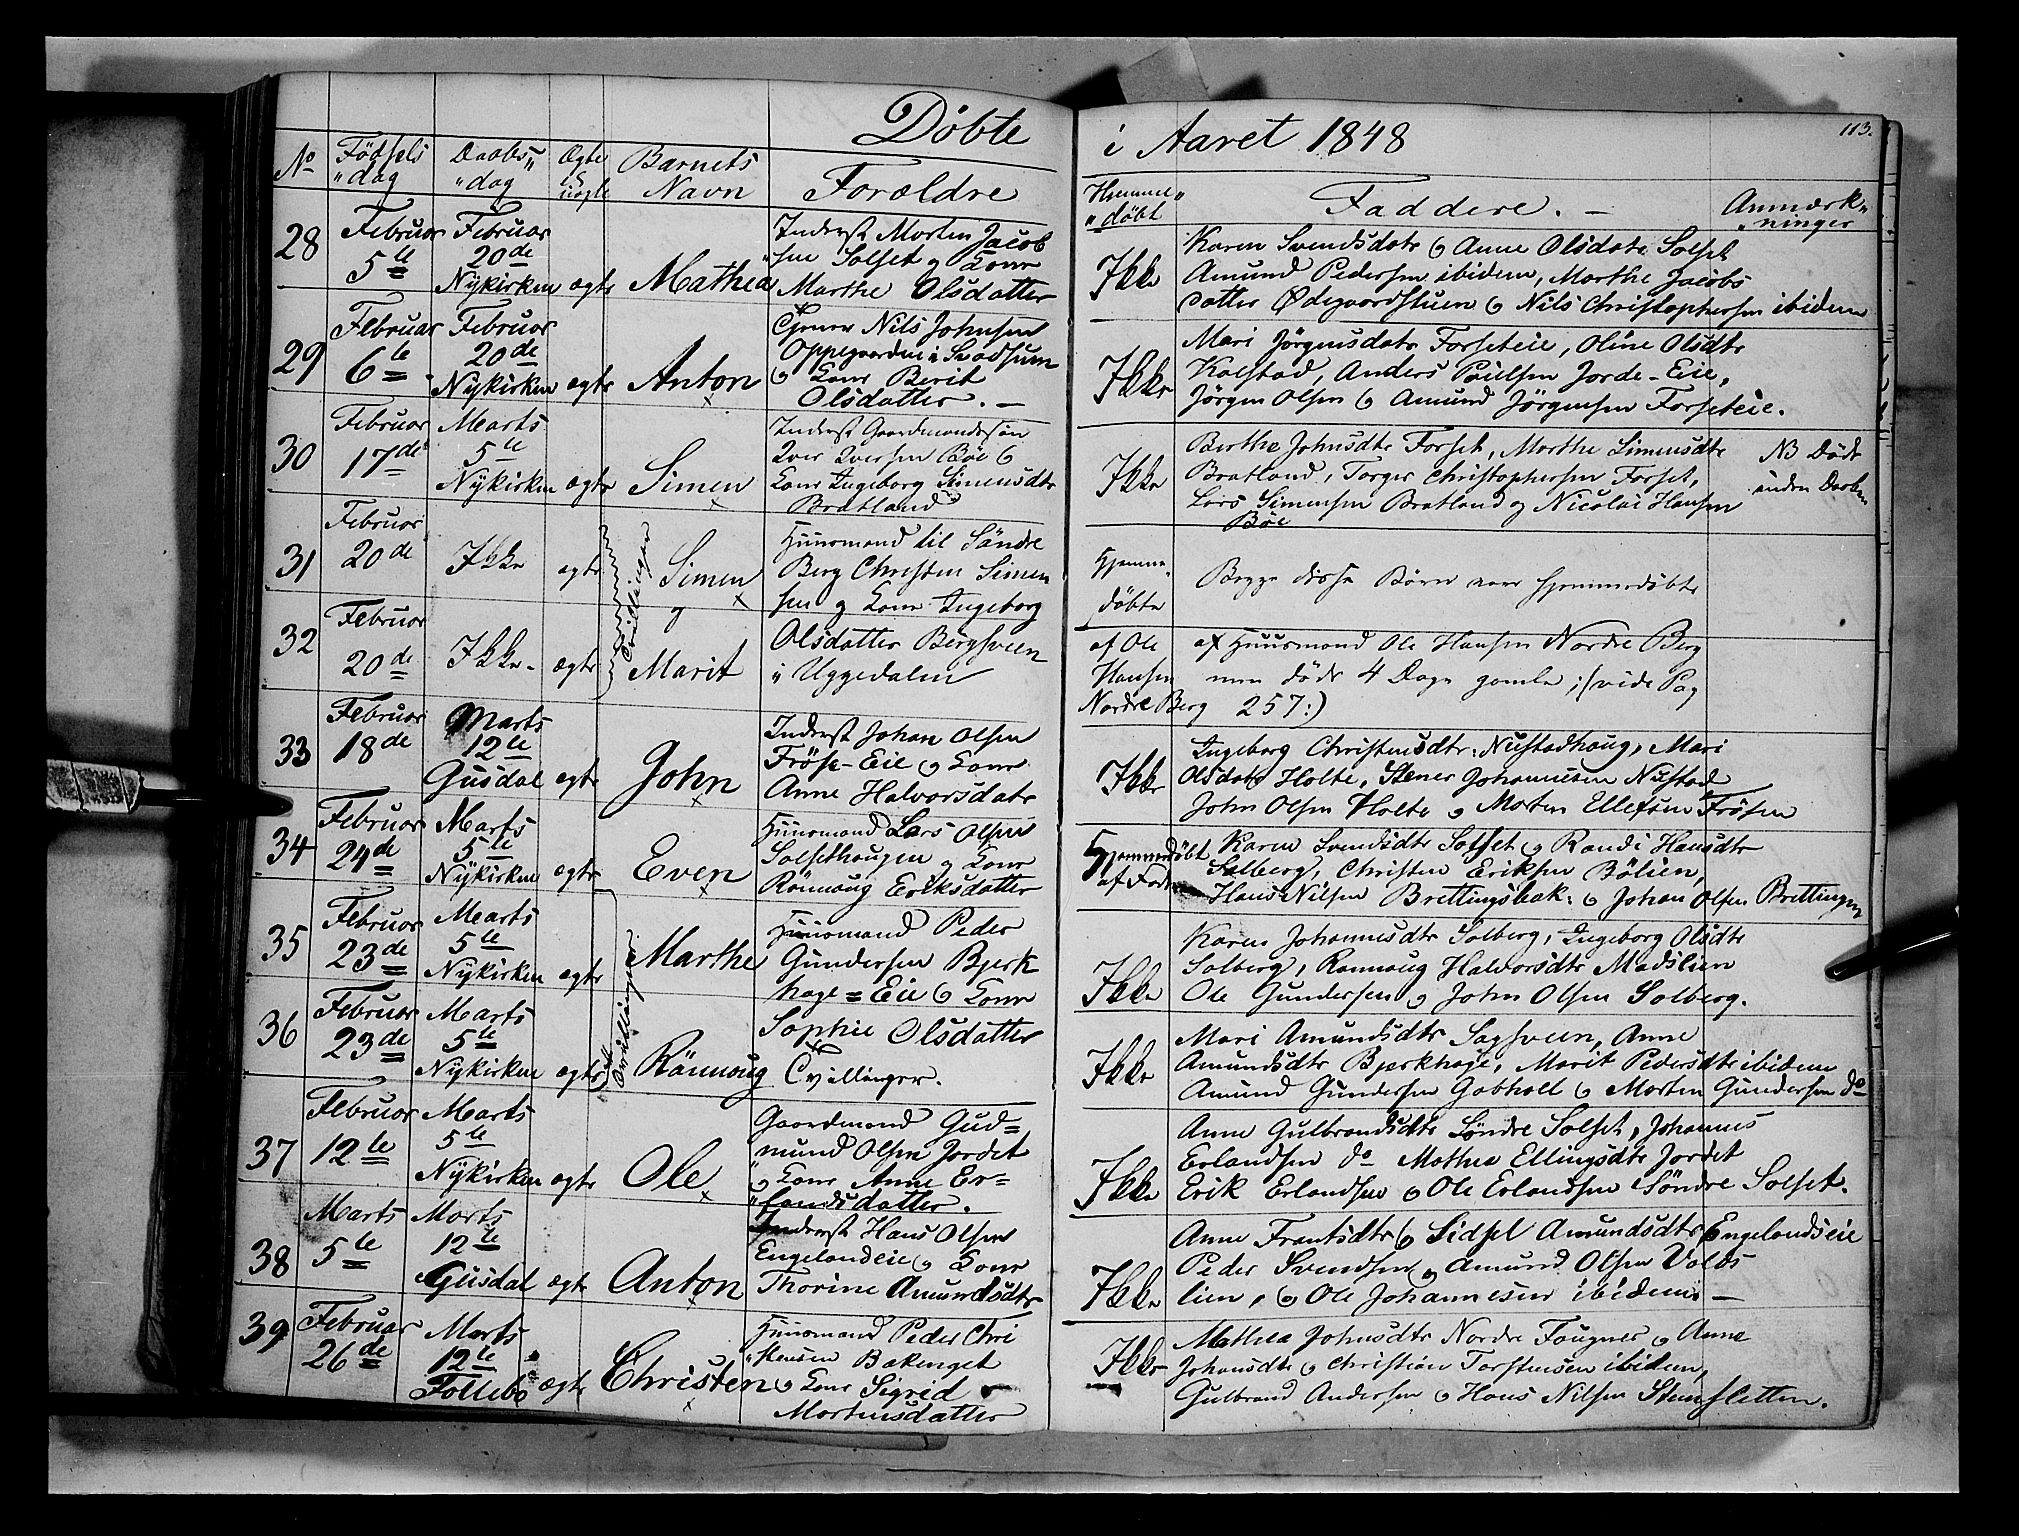 Døbte
i Aaret 1848
113.
No
Fødsels
"dag
Daabs"
"dag
Ægte
uægte
Barnets
Navn
Forældre
Hjemme"
"døbt
Faddere. -
Anmærk"
"ninger
28
Februar
5te
Februar
20de
Nykirken
ægte
Mathea
Inderst Morten Jacob
sen Solset og Kone
Marthe Olsdatter
Ikke
Karen Svendsdatr og Anne Olsdatr Solset
Amund Pedersen ibidem, Marthe Jacobs
datter Ødegaardstuen og Nils Christophersen ibidem
29
Februar
6te
Februar
20de
Nykirken
ægte
Anton
Nils Johnsen
Oppegaarden i Svadsum
og Kone Berit
Olsdatter. -
Ikke
Mari Jörgensdatr Forseteie, Oline Olsdtr
Kolstad, Anders Poulsen Jorde-Eie,
Jörgen Olsen og Amund Jörgensen Forseteie.
30
Februar
17de
Marts
5te
Nykirken
ægte
Simen
Inderst Gaardmandssön
Iver Iversen Böe og
Kone Ingeborg Simensdtr
Bratland
Ikke
Berthe Johnsdtr Forset, Marthe Simensdtr
Bratland, Torger Christophersen Forset,
Lars Simensen Bratland og Nicolai Hansen
Böe
NB Død
inden Daaben
31
Februar
20de
Ikke
ægte
Tvillinger
Simen
og
Huusmand til Söndre
Berg Christen Simen
sen og Kone Ingeborg
Hjemme-
døbte
Begge disse Børn var hjemmedøbte
32
Februar
20de
Ikke-
ægte
Marit
Olsdatter Bergsveen
i Uggedalen
af Ole
Hansen
Nordre Berg
af Huusmand Ole Hansen Nordre Berg
men døde 4 Dage gamle; (vide Pag
257:)
33
Februar
18de
Marts
12te
Gusdal
ægte
John
Inderst Johan Olsen
Fröse-Eie og Kone
Anne Halvorsdatr
Ikke
Ingeborg Christensdtr Nustadhaug, Mari
Olsdatr Holte, Stener Johannesen Nustad
John Olsen Holte og Morten Ellefsen Frösen
34
Februar
24de
Marts
5te
Nykirken
ægte
Even
Huusmand Lars Olsen
Solsethaugen og Kone
Rönnoug Eriksdatter
Hjemmedøbt
af
Karen Svendsdtr Solset og Randi Hansdtr
Solberg, Christen Eriksen Bölien,
Hans Nilsen Brettingsbak. og Johan Olsen Brettingen
35
Februar
23de
Marts
5te
Nykirken
ægte
Tvillinger
Marthe
Huusmand Peder
Gundersen Bjerk
hage=Eie og Kone
Ikke
Karen Johannesdtr Solberg, Ingeborg Olsdtr
Solberg, Ronnoug Halvorsdtr Madslien
Ole Gundersen og John Olsen Solberg.
36
Februar
23de
Marts
5te
Nykirken
ægte
Rönnoug
Sophie Olsdatter
Tvillinger.
Ikke
Mari Amundsdtr Sagsveen, Anne
Amundsdtr Bjerkhage, Marit Pedersdtr ibidem
Amund Gundersen Gobholl og Morten Gundersen do
37
Februar
12te
Marts
5te
Nykirken
ægte
Ole
Gaardmand Gud=
mund Olsen Jordet
og Kone Anne Er=
"landsdatter.
Ikke
Anne Gulbrandsdtr Söndre Solset, Johannes
Erlandsen do Mathea Ellingsdtr Jordet
Erik Erlandsen og Ole Erlandsen Söndre Solset.
38
Marts
5te
Marts
12te
Gusdal
ægte
Anton
Inderst Hans Olsen
Engelandeie og Kone
Thorine Amundsdtr
Ikke
Anne Frantsdtr og Sidsel Amundsdtr Engelandseie
Peder Svendsen, og Amund Olsen Volds
lien, og Ole Johannesen ibidem -
39
Februar
26de
Marts
12te
Follebo
ægte
Christen
Huusmand Peder Chri
"stensen Bakenget
og Kone Sigrid
Mortensdatter
Ikke
Mathea Johnsdtr Nordre Fougner og Anne
Johansdtr og Christian Torstensen ibidem,
Gulbrand Andersen og Hans Nilsen Stensletten.